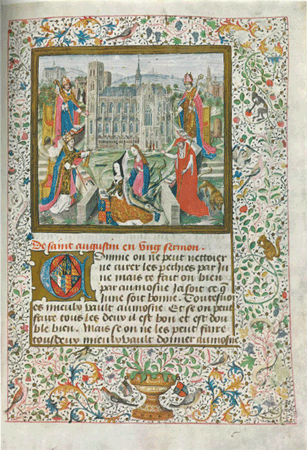 De saint augustin en ung sermon.
Omme on ne peut nettoier
ne curer les pechies par Ju
ne mais ce fait on bien
par aumosne Ja soit ce q̄
June soit bonne. Toutesuoies
mieulx vault aumosne. Et se on peut
faire tous les deux il est bon et est dou
ble bien. Mais se on ne les peut faire
tous deux mieulx vault donner aumosne